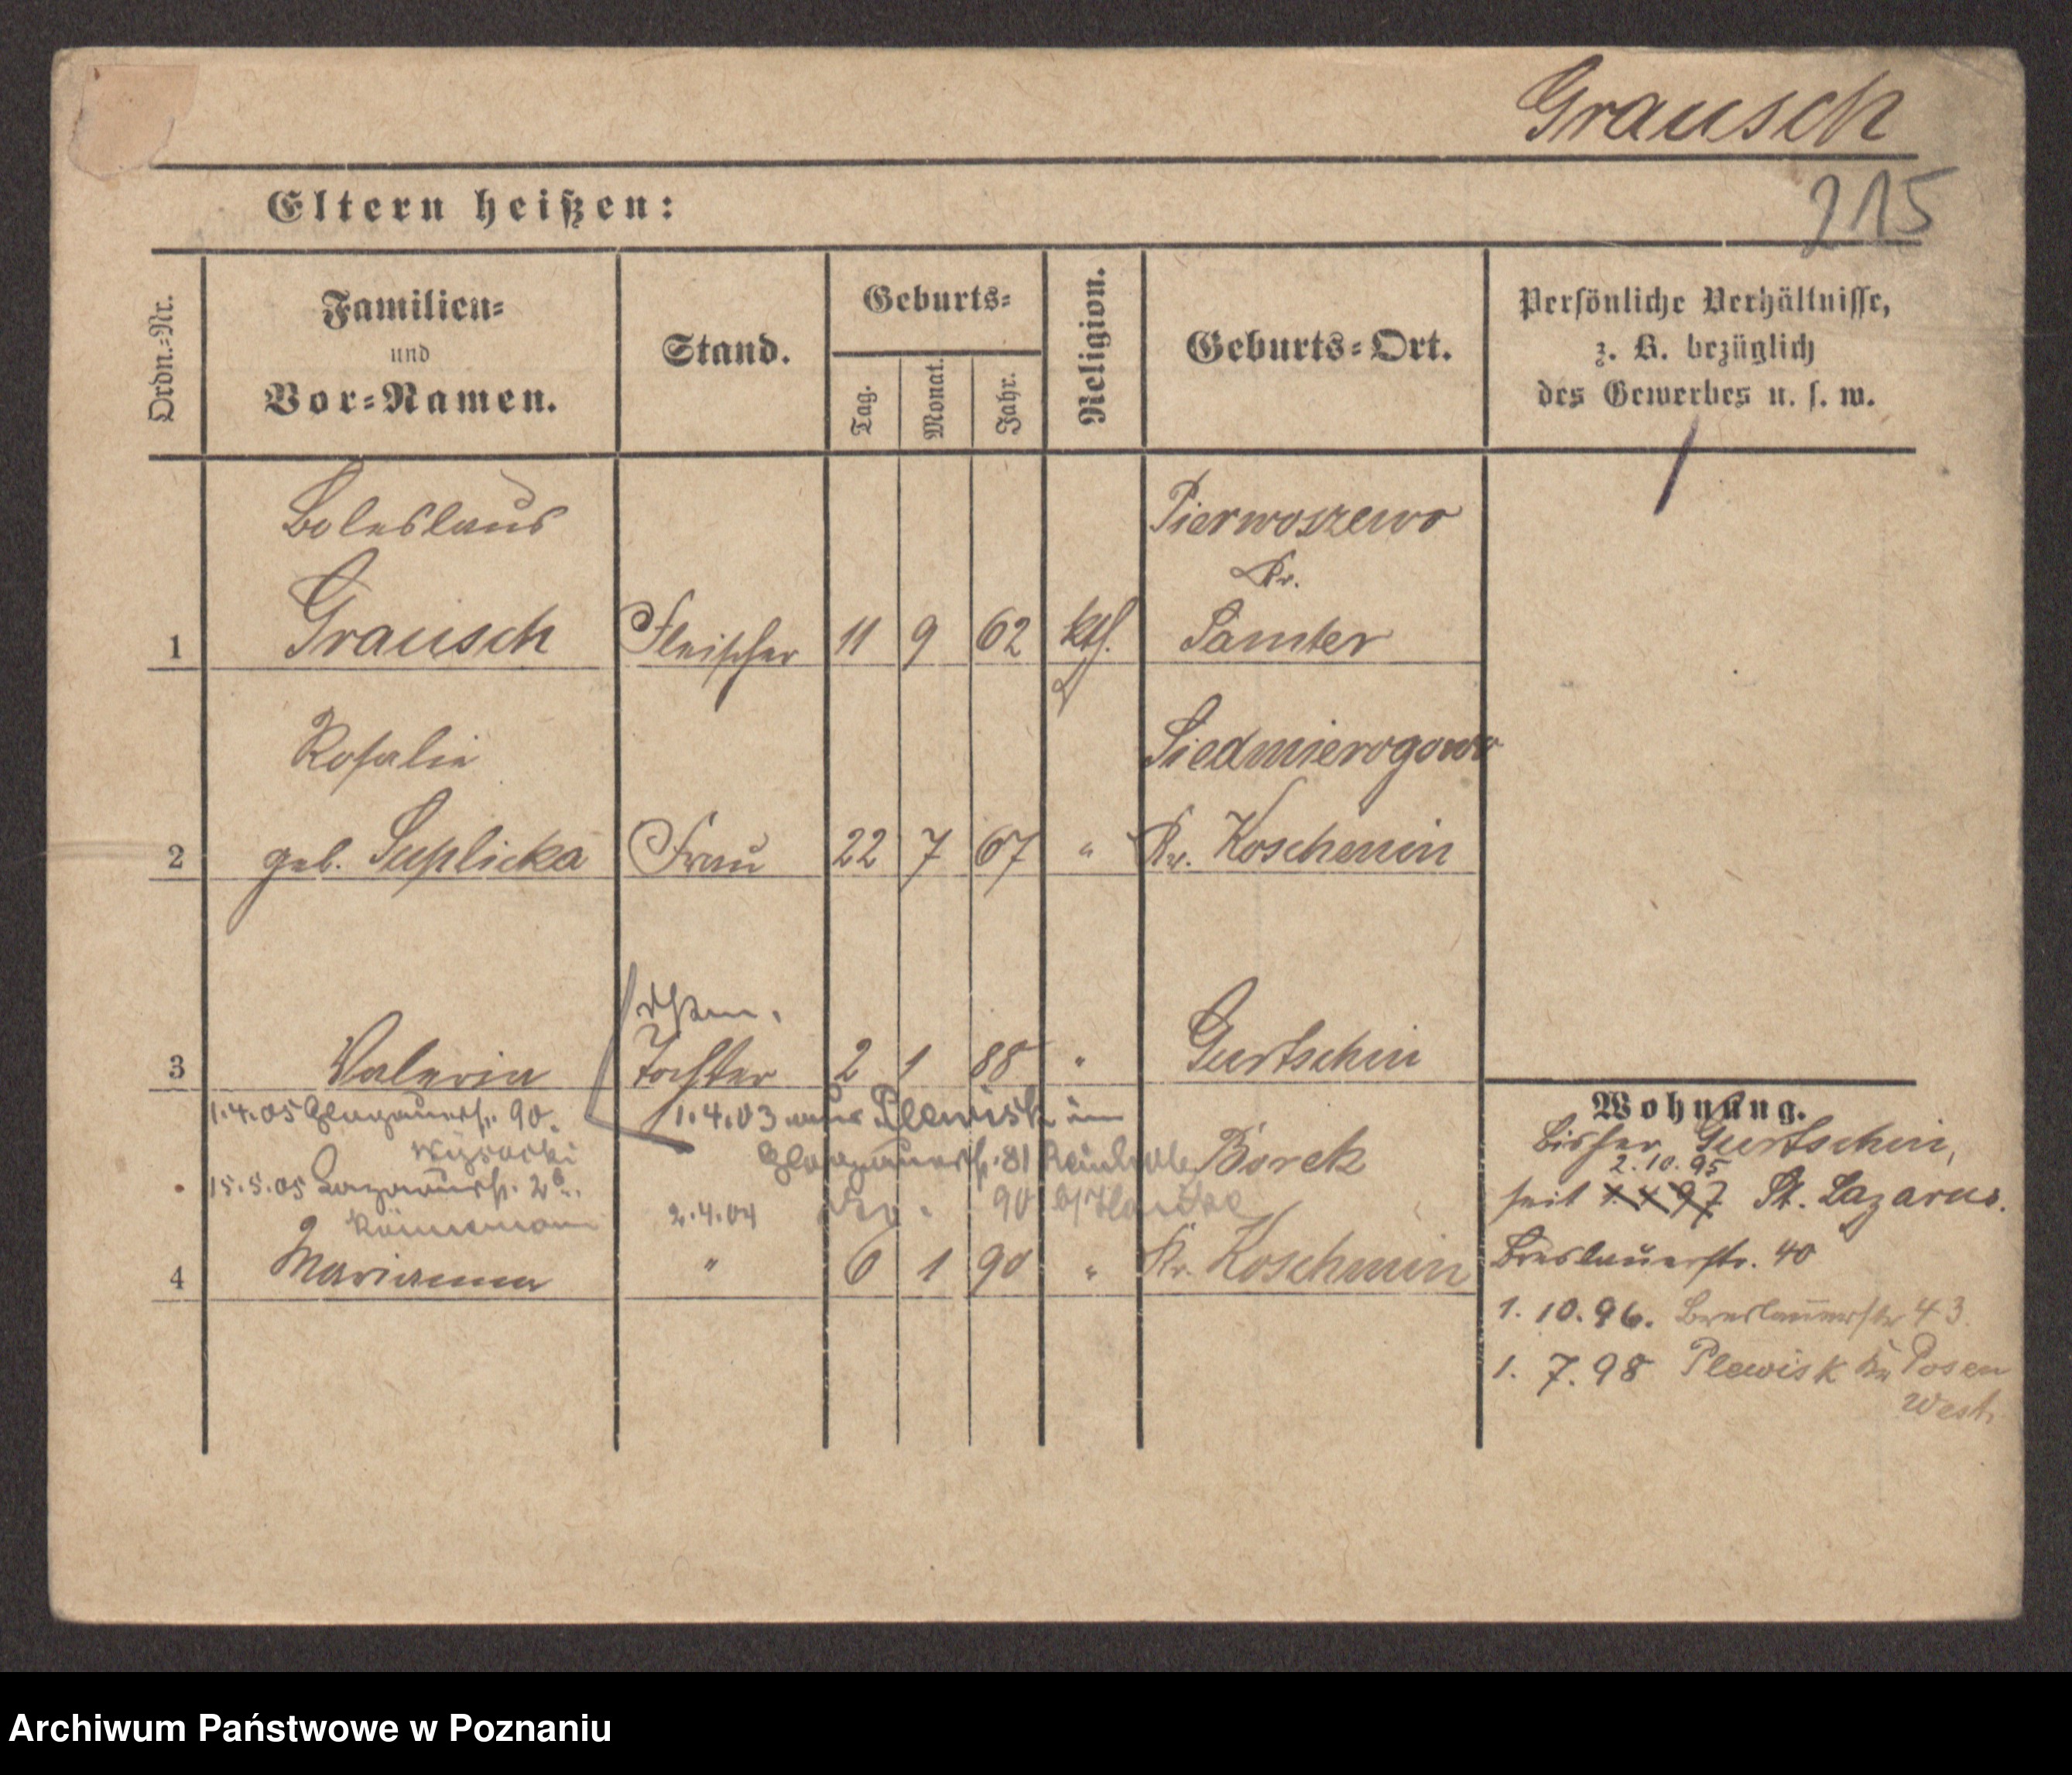 Grausch
215
Eltern heißen:
Ordn.-Nr.
Familien-
und
Vor-Namen.
Stand.
Geburts-
Tag.
Monat.
Jahr.
Religion.
Geburts-Ort.
Persönliche Verhältnisse,
z. B. bezüglich
des Gewerbes u. s. w.
Boleslaus
Pierwoszewo
Kr.
1 Grausch Fleischer 11 9 62 kth. Samter
Rosalie
Siedmierogowo
2 geb. Suplicka Frau 22 7 67 " Kr. Koschmin
3 Valeria Tochter 2 1 88 " Gurtschin
1.4.05 Glogauerstr. 90.
Wysocki
15.5.05
1.4.03 aus Plewisk in
Glogauerstr. 81
2.4.04 90
Borek
4 Marianna " 6 1 90 " Kr. Koschmin
Wohnung.
bisher Gurtschin,
2.10.95
seit St. Lazarus.
Breslauerstr. 40
1. 10. 96. Breslauerstr 43.
1. 7. 98 Plewisk Kr Posen
West.
Archiwum Państwowe w Poznaniu